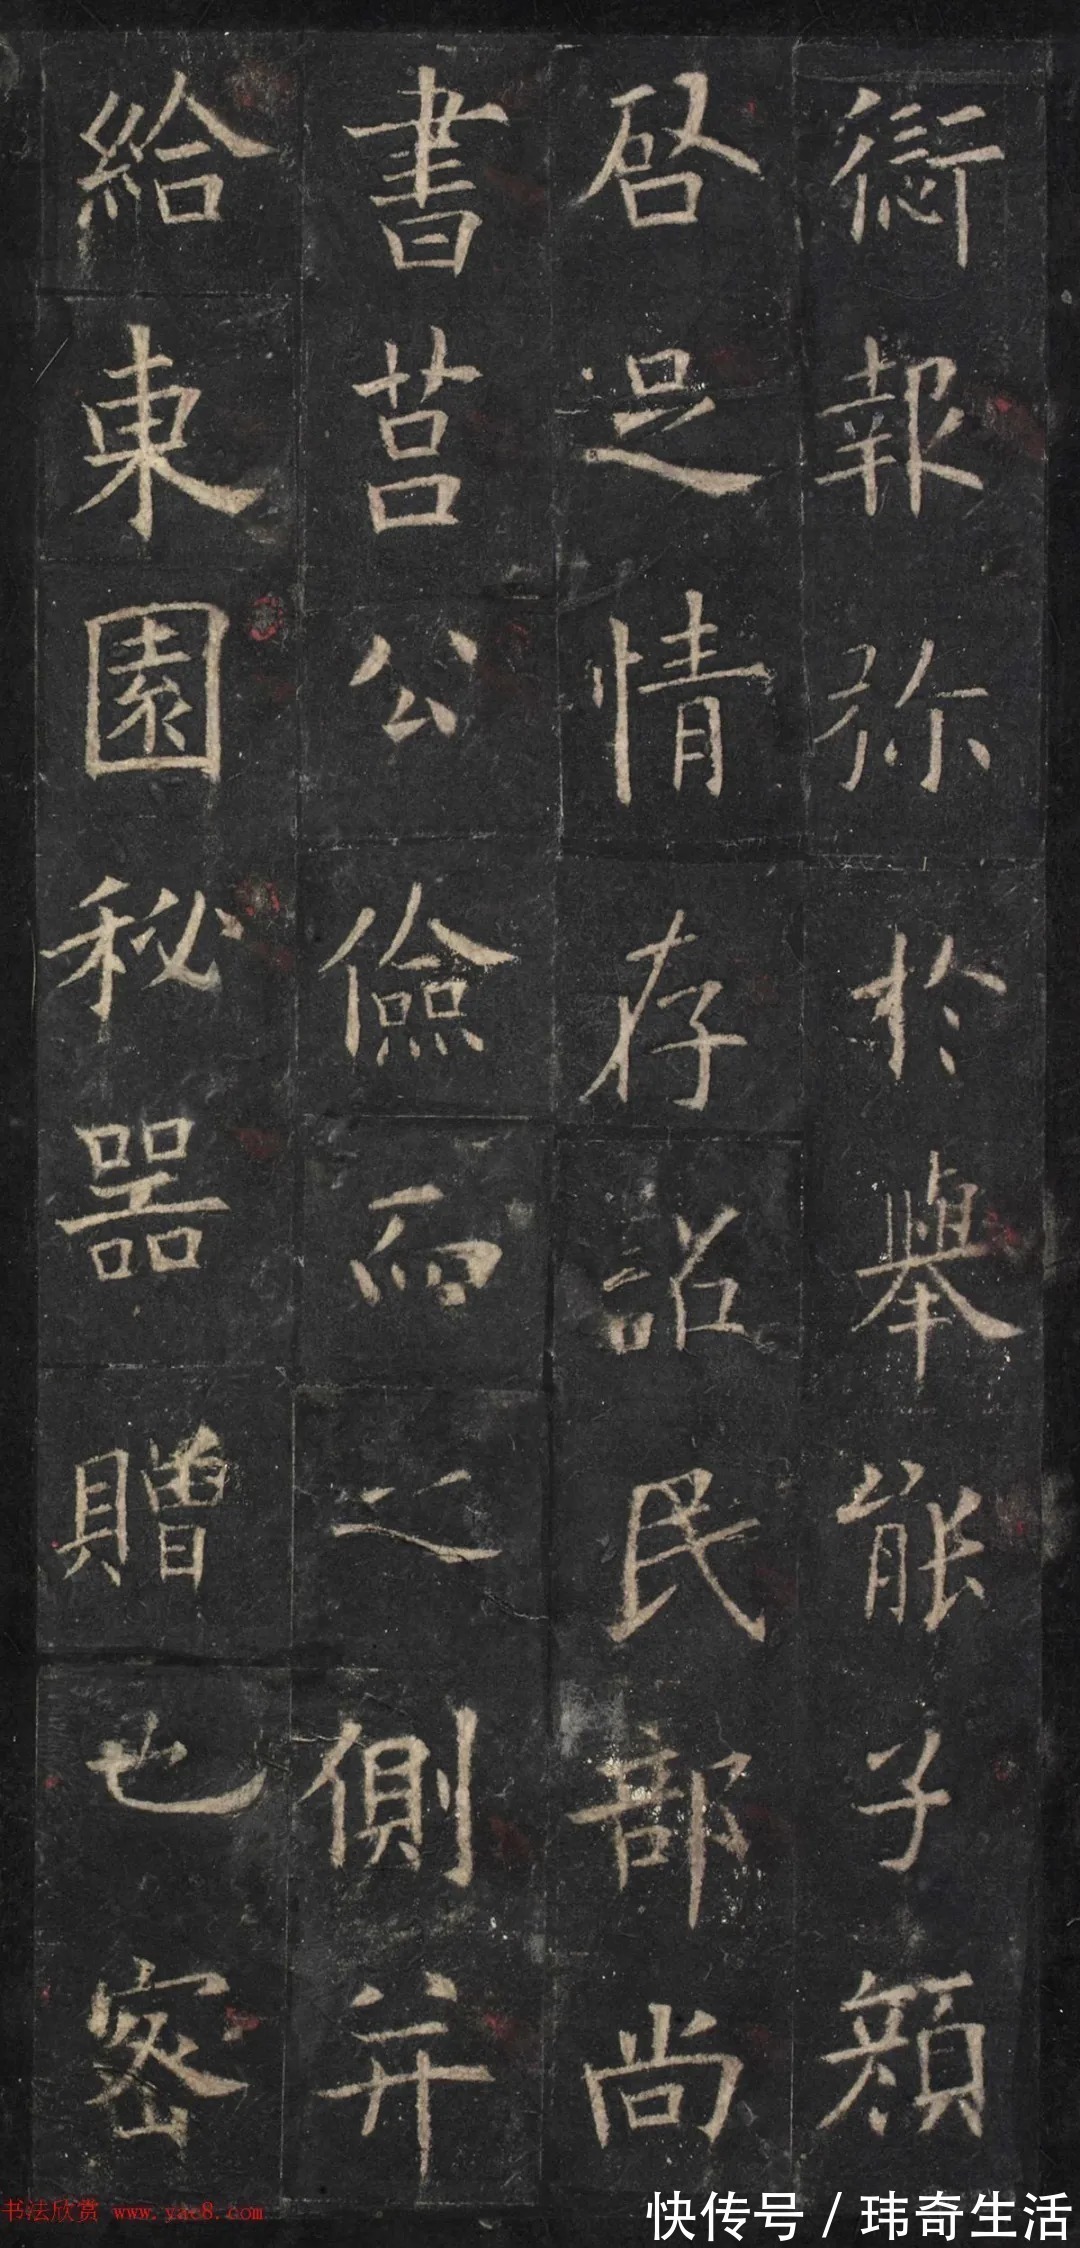 衍報弥於舉能子顔
啓足情存詔民部尚
書莒公儉而之側并
給東園秘器贈也密
书法欣赏 www.yac8.com
快传号 / 玮奇生活